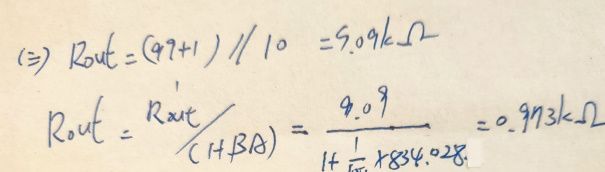 (三) Rout = (99+1) // 10 = 9.09kΩ
Rout = R'out/(1+βA) = 9.09/(1+ 1/100 ×834.028) = 0.973kΩ